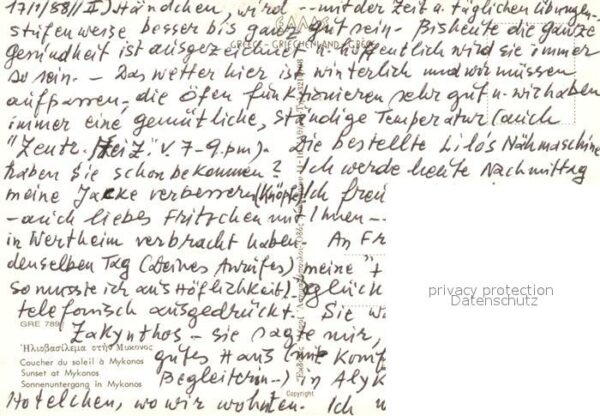 17/1/88// II) Händchen, wird -- mit der Zeit u. täglichen Übungen-
stufenweise besser bis ganz gut sein. - Bis heute die ganze
GAAS
GREECE - GRIECHENLAND - GRECE
Gesundheit ist ausgezeichnet - hoffentlich wird sie immer
so sein. - Das Wetter hier ist winterlich und wir müssen
aufpassen, die Öfen funktionieren sehr gut u. wir haben
immer eine gemütliche, ständige Temperatur (auch
"Zentr. Heiz." v. 7-9. pm). - Die bestellte Lilo's Nähmaschine
haben Sie schon bekommen? Ich werde heute Nachmittag
meine Jacke verbessern (Knöpfe). Ich freu
- auch liebes Fritzchen mit Ihnen --
in Wertheim verbracht haben. An Fr
denselben Tag (Deines Anrufes) meine "
so musste ich aus Höflichkeit) glück
telefonisch ausgedrückt. Sie w
GRE 789
Zakynthos - sie sagte mir,
Ἡλιοβασίλεμα στὴ Μύκονος
Coucher du soleil à Mykonos
Sunset at Mykonos
Sonnenuntergang in Mykonos
gutes Haus (mit Komf
Begleiterin-) in Alyk
Copyright
Hotelchen, wo wir wohnten. Ich
privacy protection
Datenschutz